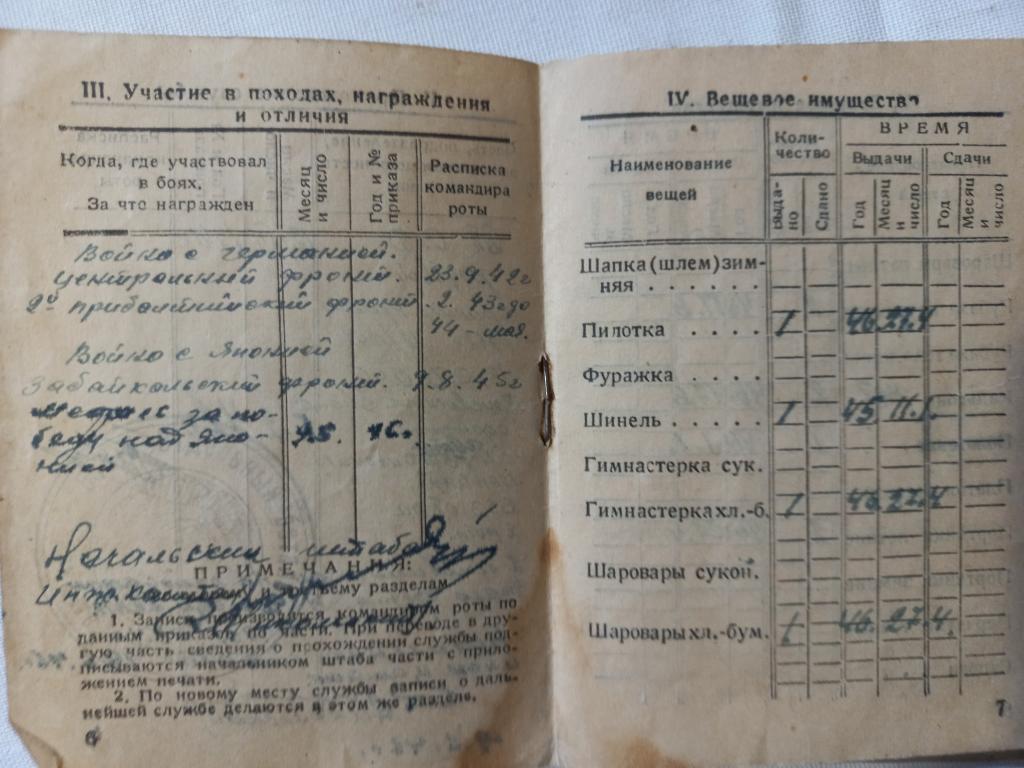 III. Участие в походах, награждения
и отличия
Когда, где участвовал
в боях.
За что награжден
Месяц
и число
Год и №
приказа
Расписка
командира
роты
Война с германией.
Центральный фронт. 23.9.42г
2ой прибалтийский фронт. 2. 43г до
44 - мая.
Война с Японией
Забайкальский фронт. 9.8.45г
за по-
беду над Япо-
нией
Начальник штаба
ПРИМЕЧАНИЯ:
и третьему разделам
1. Записи производятся командиром роты по
данным приказа по части. При переводе в дру-
гую часть сведения о прохождении службы под-
писываются начальником штаба части с прило-
жением печати.
2. По новому месту службы записи о даль-
нейшей службе делаются в этом же разделе.
6
IV. Вещевое имущество
Наименование
вещей
Коли-
чество
Выда-
но
Сдано
ВРЕМЯ
Выдачи
Сдачи
Год
Месяц
и
число
Год
Месяц
и
число
Шапка (шлем) зим-
няя . . . . . .
Пилотка . . . . 1 46 27.4
Фуражка . . . .
Шинель . . . . 1 45 11.
Гимнастерка сук.
Гимнастерка хл.-б. 1 46 27.4
Шаровары сукон.
Шаровары хл.-бум. 1 46 27.4.
7